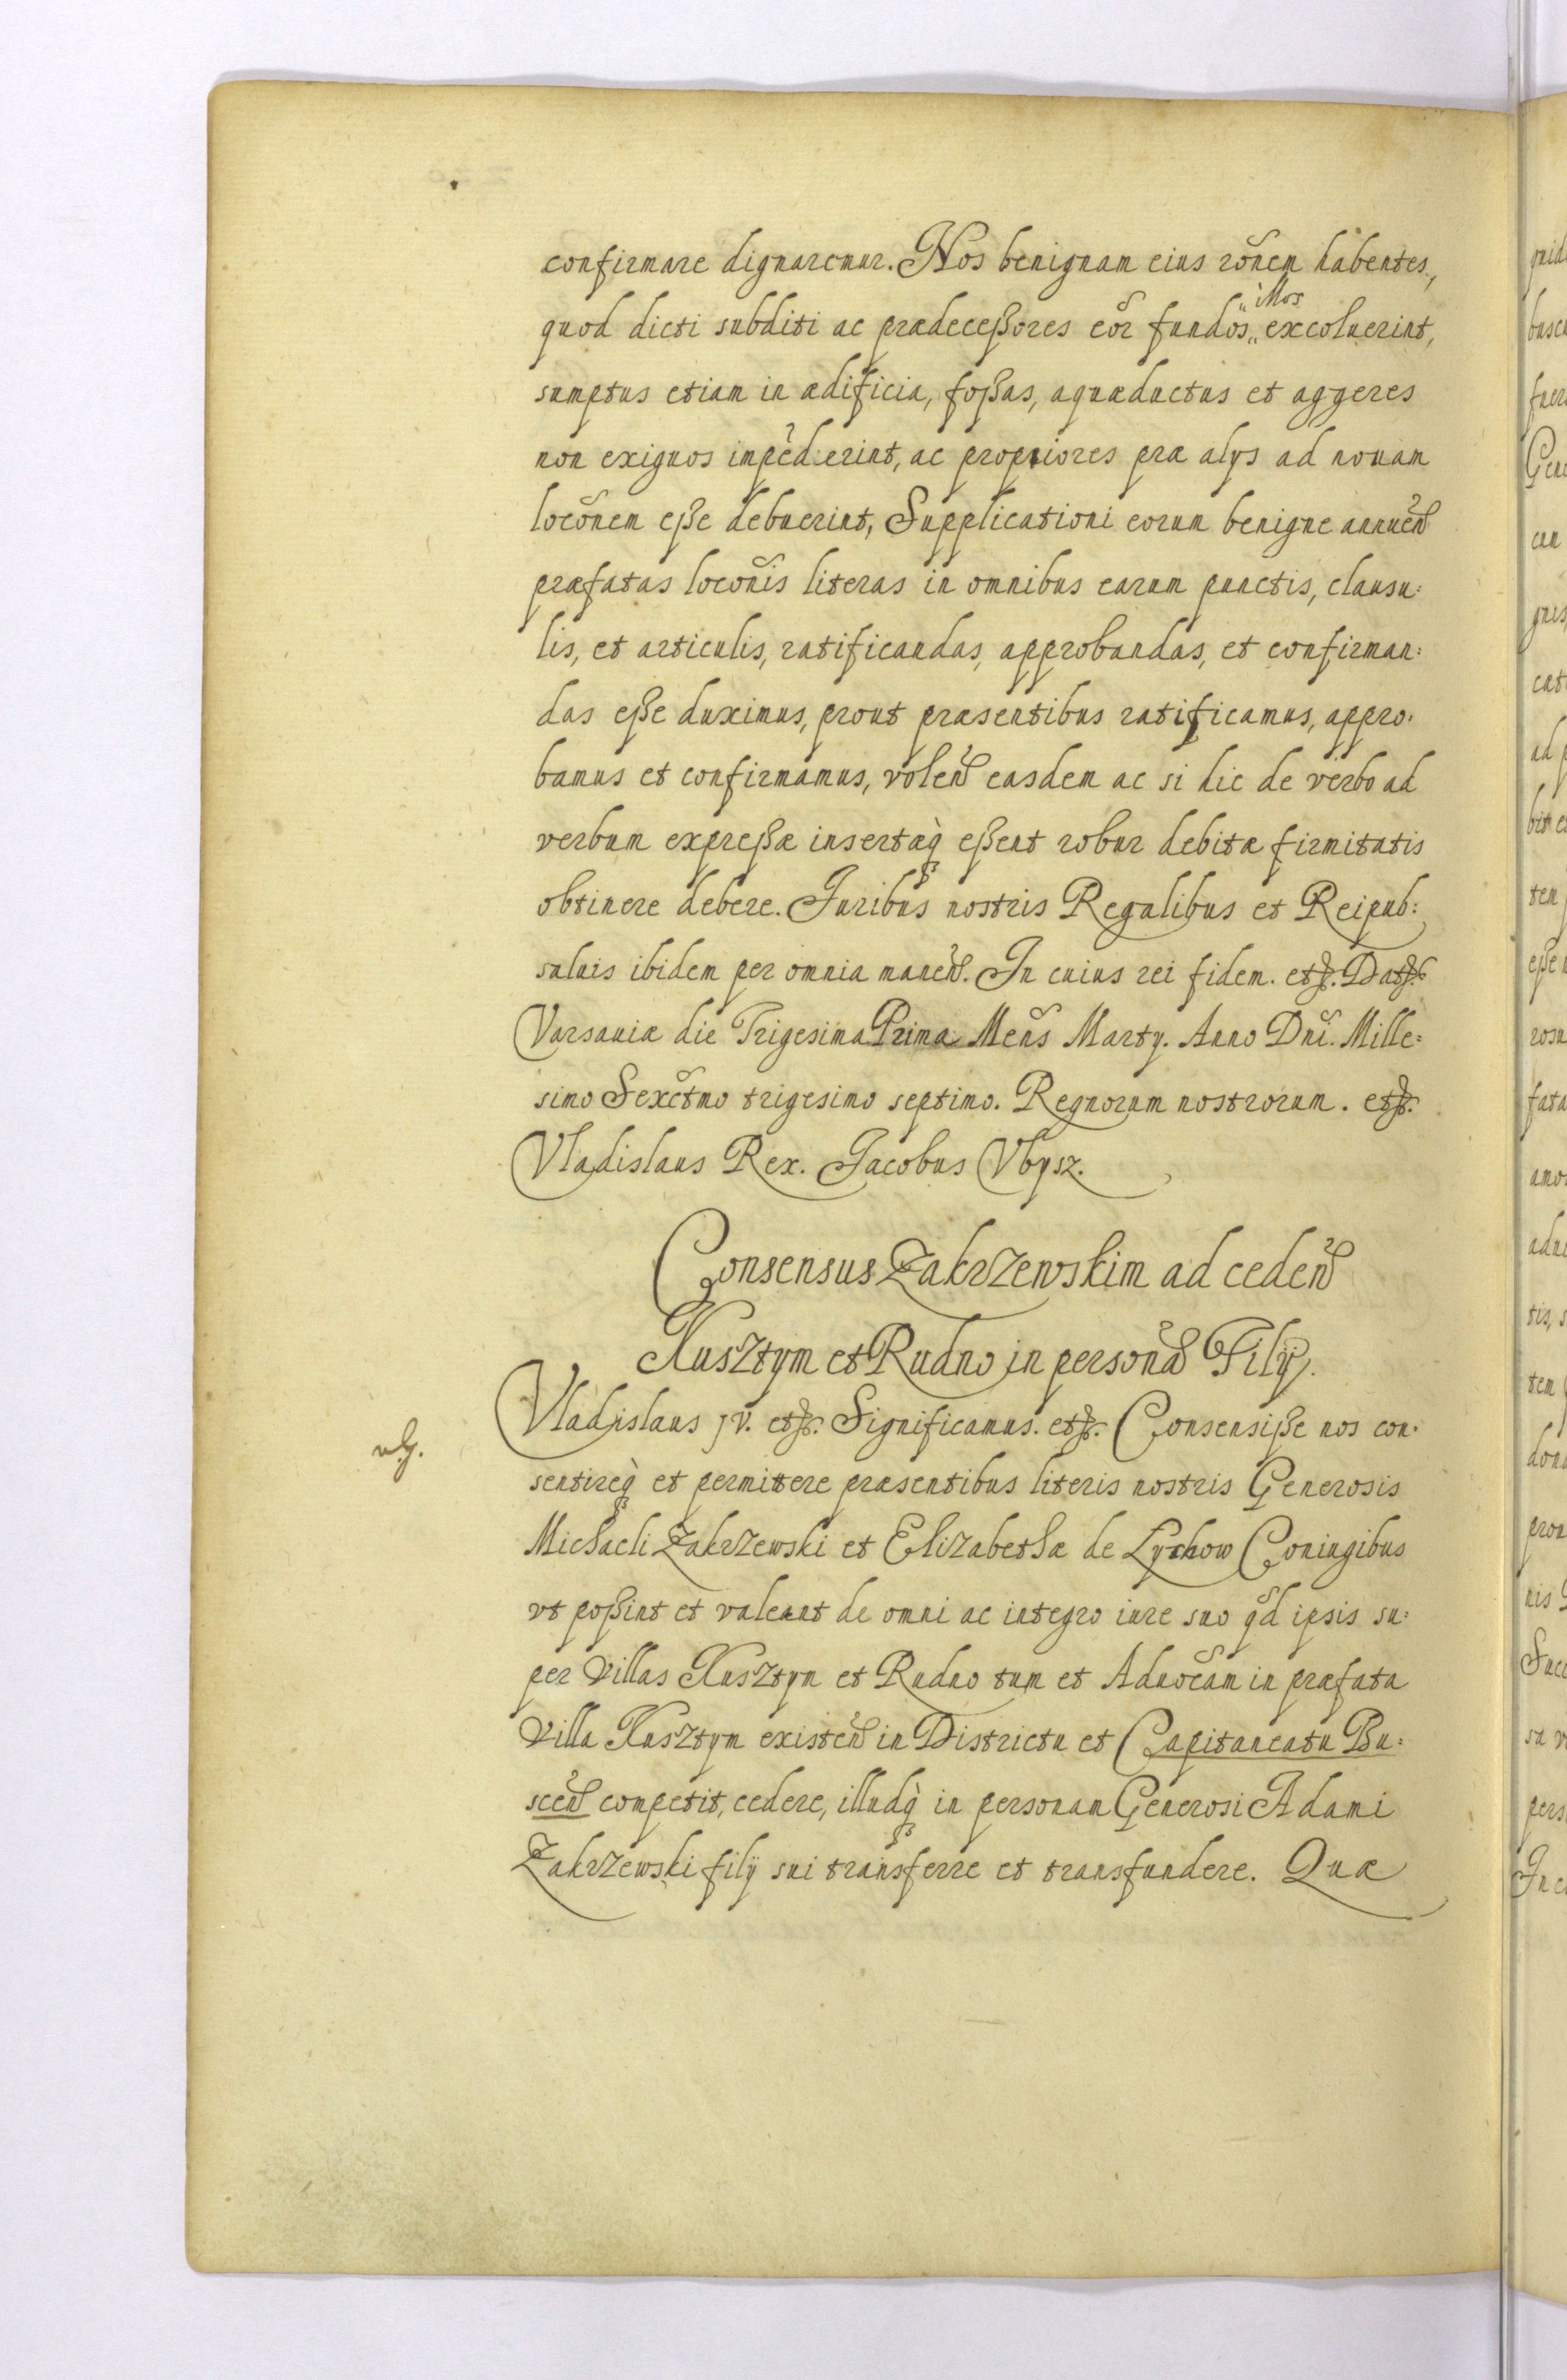 confirmare dignaremur. Nos benignam eius rõnem habentes,
quod dicti subditi ac prædeceßores eõr fundos illos excoluerint,
sumptus etiam in ædificia, foßas, aquæductus et aggeres
non exiguos impẽderint, ac propriores præ alys ad nouam
locõnem eße debuerint, Supplicationi eorum benigne annueñ
præfatas locõnis literas in omnibus earum punctis, clausu:
lis, et articulis, ratificandas, approbandas, et confirman:
das eße duximus, prout præsentibus ratificamus, appro:
bamus et confirmamus, voleñ easdem ac si hic de verbo ad
verbum expreßæ insertæq̀ eßent robur debitæ firmitatis
obtinere debere. Juribus nostris Regalibus et Reipub:
saluis ibidem per omnia maneñ. In cuius rei fidem. etc. Dat.
Varsauiæ die Trigesima Prima Meñs Marty. Anno Dñi. Mille:
simo Sexctmo trigesimo septimo. Regnorum nostrorum. etc.
Vladislaus Rex. Jacobus Vbysz.
Consensus Zakrzewskim ad cedeñ
Kusztym et Rudno in personã Filij.
Vladislaus IV. etc. Significamus. etc. Consensiße nos con:
sentireq̀ et permittere præsentibus literis nostris Generosis
Michaeli Zakrzewski et Elizabethæ de Lychow Coniugibus
vt poßint et valeant de omni ac integro iure suo qd ipsis su:
per Villas Kusztyn et Rudno tum et Aduocãm in præfata
Villa Kusztym existeñ in Districtu et Capitaneatu Bu:
sceñ competit, cedere, illudq̀ in personam Generosi Adami
Zakrzewski filij sui transferre et transfundere. Quæ